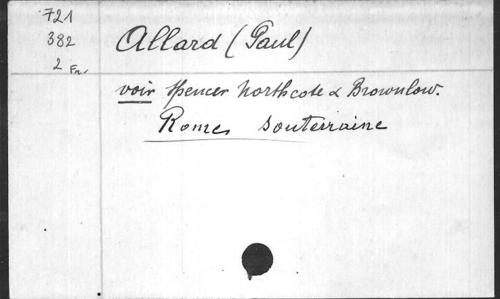 721
382
2 Fr.
Allard (Paul)
voir Spencer Northcote & Brownlow.
Rome souterraine